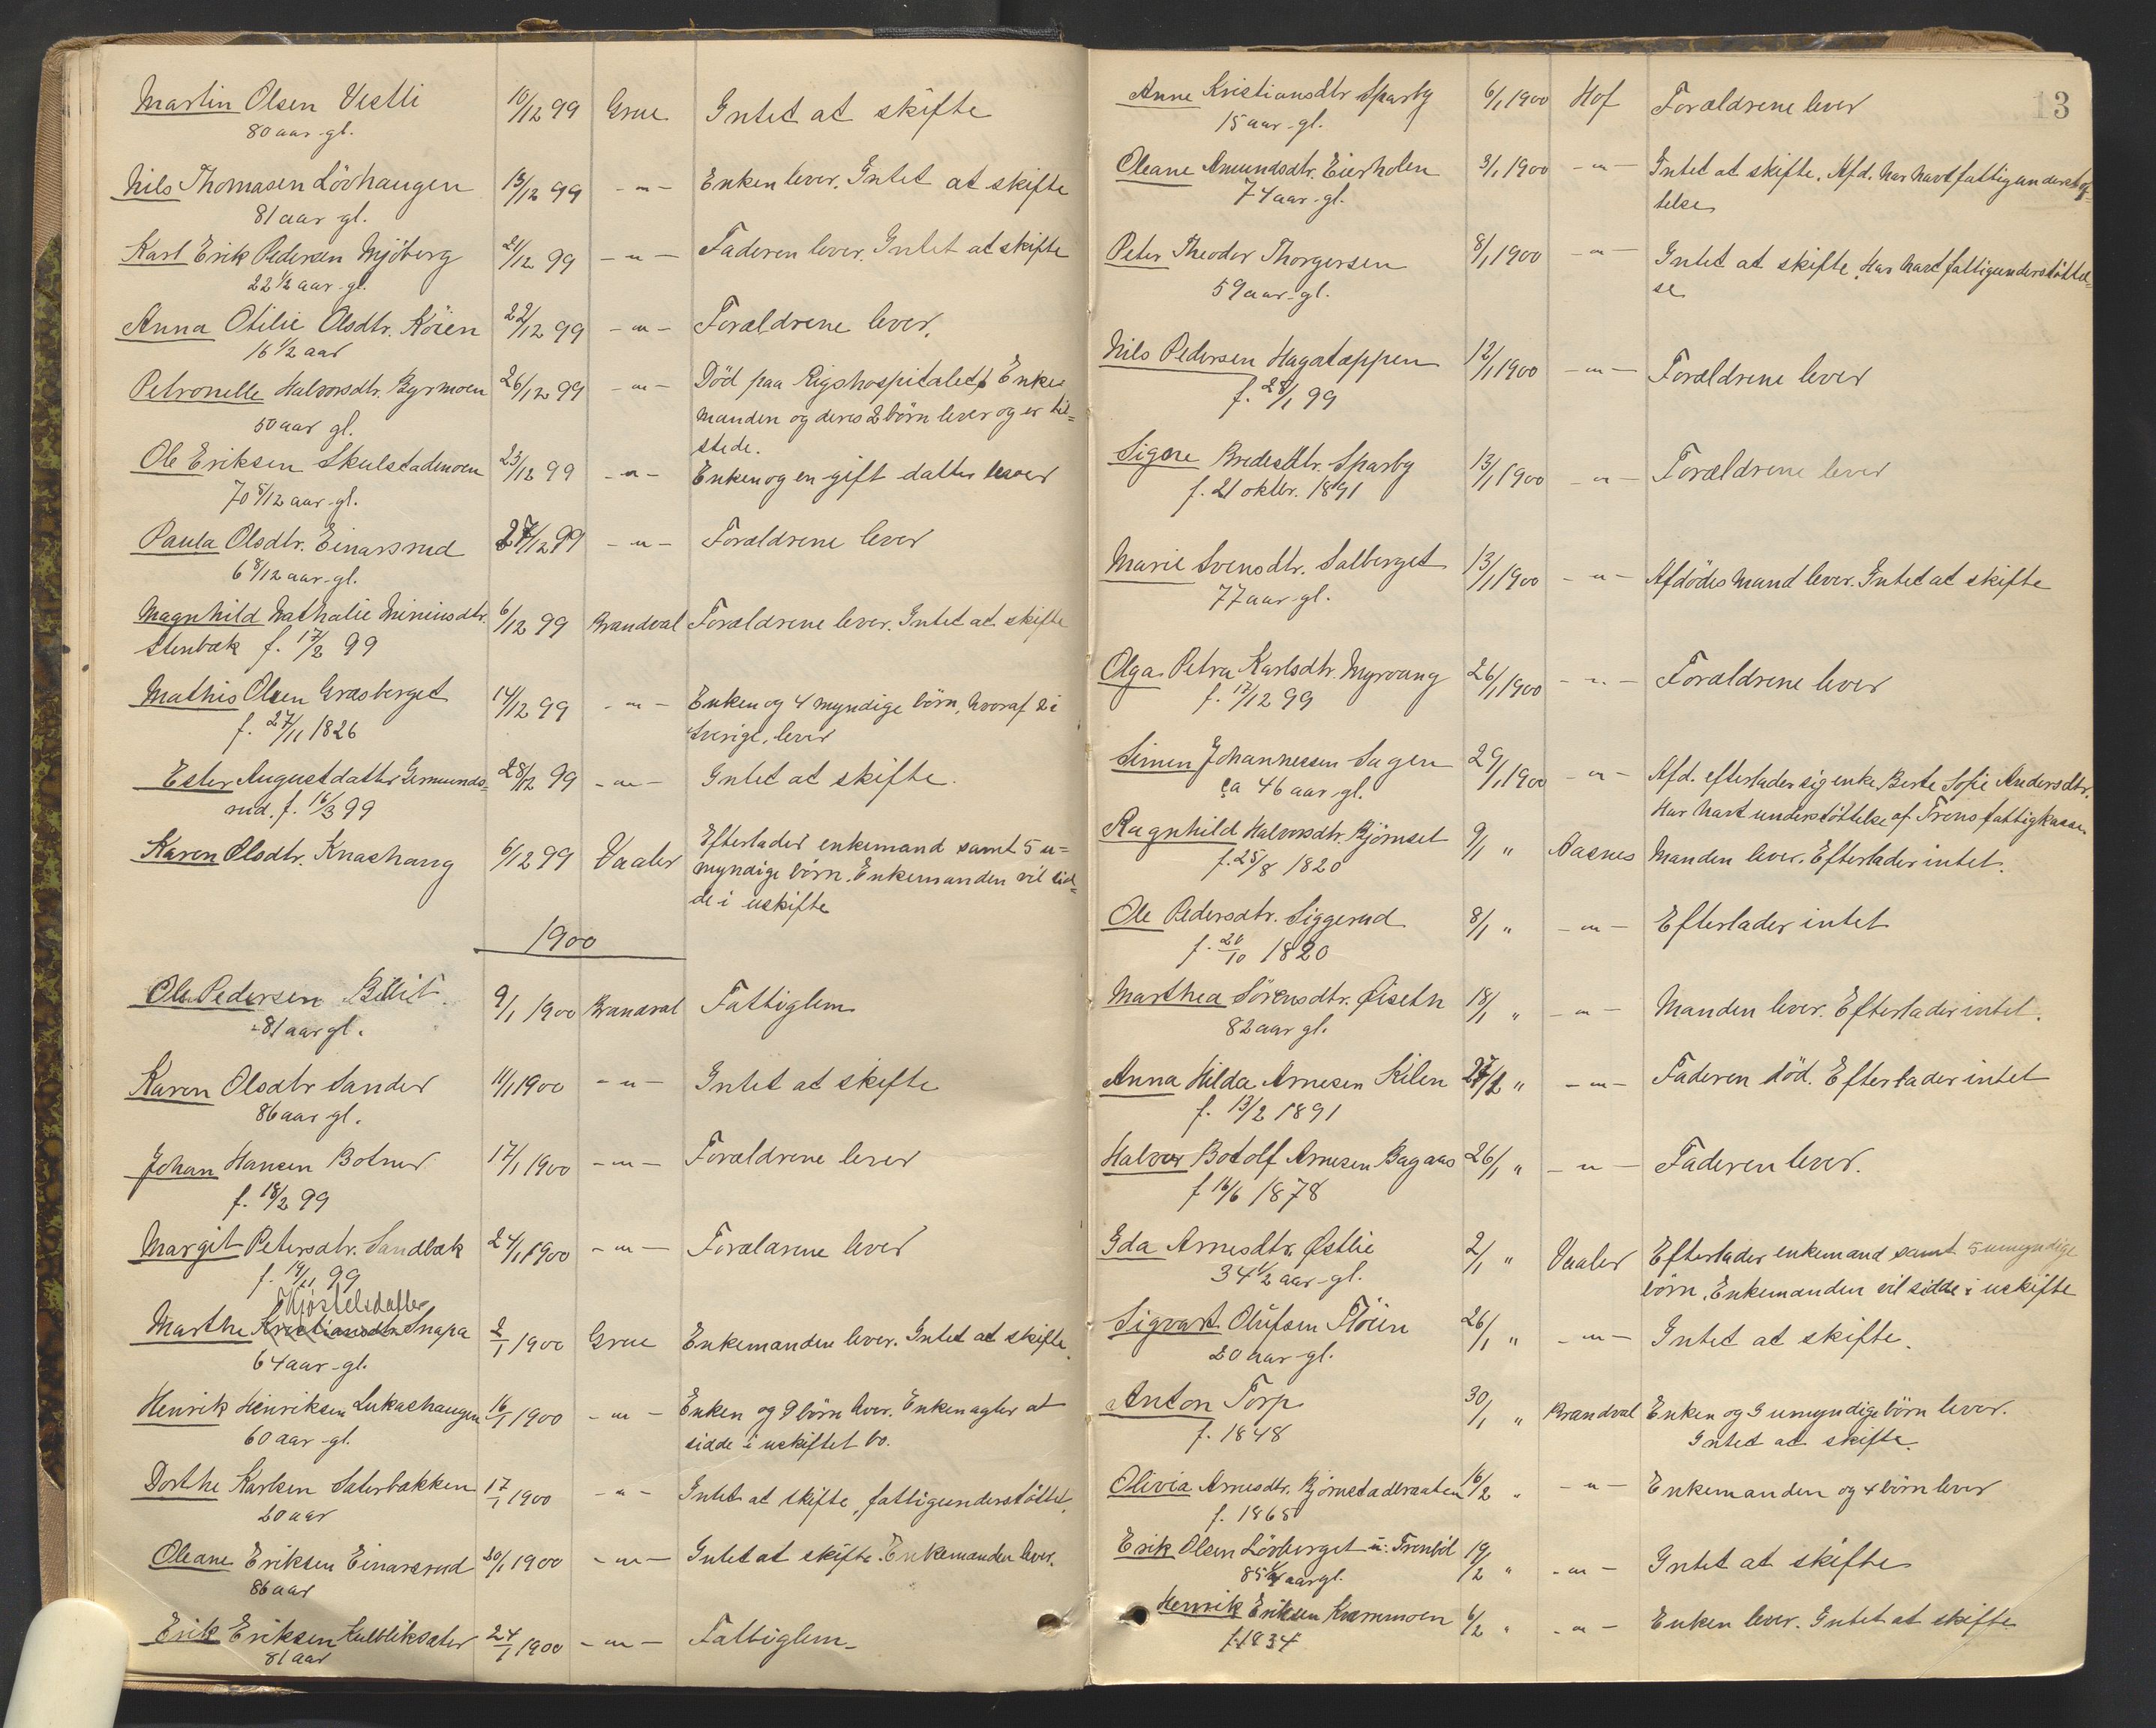 Martin Olsen Vestli 10/12 99 Grue Intet at skifte
80 aar gl.
Nils Thomasen Lövhaugen 13/12 99 - " - Enken lever. Intet at skifte
81 aar gl.
Karl Erik Pedersen Mjöberg 21/12 99 - " - Faderen lever. Intet at skifte
22 1/2 aar gl.
Anna Otilie Olsdtr. Köien 22/12 99 - " - Forældrene lever.
16 1/2 aar
Petronelle Halvorsdtr. Byrmoen 26/12 99 - " - Död paa Rigshospitalet. Enke-
50 aar gl. manden og deres 2 börn lever og er til=
stede.
Ole Eriksen Skulstadmoen 23/12 99 - " - Enken og en gift datter lever
70 5/12 aar gl.
Paula Olsdtr. Einarsrud 27/12 99 - " - Forældrene lever
6 8/12 aar gl.
Magnhild Nathalie Miniusdtr. 6/12 99 Brandval Forældrene lever. Intet at skifte
Stenbæk f. 17/2 99
Mathis Olsen Græsberget 14/12 99 - " - Enken og 4 myndige börn, hvoraf 2 i
f. 27/11 1826 Sverige, lever
Ester Augustdatter Gemunds= 28/12 99 - " - Intet at skifte.
rud. f. 16/3 99
Karen Olsdtr. Knashaug 6/12 99 Vaaler Efterlader enkemand samt 5 u=
myndige börn. Enkemanden vil sid=
de i uskifte
1900
Ole Pedersen Billit 9/1 1900 Brandval Fattiglem
81 aar gl.
Karen Olsdtr Sander 11/1 1900 - " - Intet at skifte
86 aar gl.
Johan Hansen Botner 17/1 1900 - " - Forældrene lever
f. 18/2 99
Margit Petersdtr. Sandbæk 24/1 1900 - " - Forældrene lever
f. 14/11 99
Kjöstelsdatter
Marthe Kristiansdtr. Snapa 2/1 1900 Grue Enkemanden lever. Intet at skifte.
64 aar gl.
Henrik Henriksen Lukashaugen 16/1 1900 - " - Enken og 9 börn lever. Enken agter at
60 aar gl. sidde i uskiftet bo.
Dorthe Karlsen Sæterbakken 17/1 1900 - " - Intet at skifte, fattigunderstöttet.
20 aar
Oleane Eriksen Einarsrud 20/1 1900 - " - Intet at skifte. Enkemanden lever.
86 aar
Erik Eriksen Kulbliksæter 24/1 1900 - " - Fattiglem
81 aar
13
Anne Kristiansdtr Sparby 6/1 1900 Hof Forældrene lever
15 aar gl.
Oleane Amundsdtr. Eierholen 3/1 1900 - " - Intet at skifte. Afd. har havt fattigunderstöt-
74 aar gl. telse
Peter Theodor Thorgersen 8/1 1900 - " - Intet at skifte. Har havt fattigunderstöttel-
59 aar gl. se
Nils Pedersen Hagatappen 12/1 1900 - " - Forældrene lever
f. 28/1 99
Signe Bredesdtr. Sparby 13/1 1900 - " - Forældrene lever
f. 21 oktbr. 1891
Marie Svensdtr. Salberget 13/1 1900 - " - Afdödes mand lever. Intet at skifte
77 aar gl.
Olga Petra Karlsdtr. Myrvang 26/1 1900 - " - Forældrene lever
f. 17/12 99
Simen Johannessen Sagen 29/1 1900 - " - Afd. efterlader sig enke Berte Sofie Andersdtr.
ca 46 aar gl. Har havt understöttelse af Trons fattigkasse.
Ragnhild Halvorsdtr. Björnset 9/1 " Aasnes Manden lever. Efterlader intet.
f. 25/8 1820
Ole Pedersdtr. Siggerud 8/1 " - " - Efterlader intet
f. 20/10 1820
Marthea Sörensdtr. Öiseth 18/1 " - " - Manden lever. Efterlader intet.
82 aar gl.
Anna Hilda Arnesen Kilen 27/1 " - " - Faderen död. Efterlader intet
f. 13/2 1891
Halvor Botolf Arnesen Bagaas 26/1 " - " - Faderen lever.
f 16/6 1878
Ida Arnesdtr. Østlie 2/1 " Vaaler Efterlader enkemand samt 5 umyndige
34 1/2 aar gl. börn. Enkemanden vil sidde i uskifte
Sigvart Olufsen Flöien 26/1 " - " - Intet at skifte.
20 aar gl.
Anton Torp 30/1 " Brandval Enken og 3 umyndige börn lever.
f. 1848 Intet at skifte.
Olivia Arnesdtr. Björnstadbraaten 16/2 " - " - Enkemanden og 4 börn lever
f. 1865
Erik Olsen Lövberget u. Trönböl 19/2 " - " - Intet at skifte
85 1/4 aar gl.
Henrik Eriksen Kvernmoen 6/2 " - " - Enken lever. Intet at skifte
f. 1834